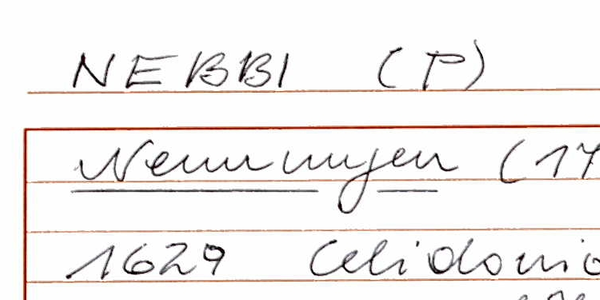 NEBBI (P)
Nennungen (17
1629 Celidonio